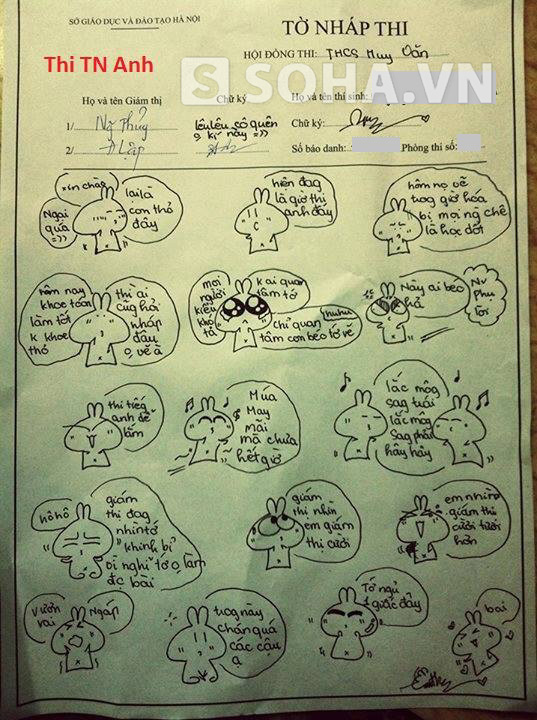 SỞ GIÁO DỤC VÀ ĐÀO TẠO HÀ NỘI
TỜ NHÁP THI
HỘI ĐỒNG THI: THCS Huy Văn
Thi TN Anh
SOHA.VN
Họ và tên Giám thị
Chữ ký
Họ và tên thí sinh:
1/ Ng Thủy
lêu lêu số quên
kí này =))
Chữ ký:
2/
Số báo danh:
Phòng thi số:
xin chào
Ngại
quá
=))
lại là
con thỏ
đây
hiện đag
là giờ thi
anh đây
hôm nọ vẽ
trog giờ hóa
bị mọi ng chê
là học dốt
hôm nay
khoe toán
làm tốt
k khoe
thỏ
thì ai
cũg phải
nháp
đâu
mọi
người
k ai quan
tâm tớ
huhu
chỉ quan
tâm con béo tớ vẽ
Này ai béo
hả
thi tiếg
anh dễ
lắm
Múa
May
mãi
mà chưa
hết giờ
lắc môg
sag trái
lắc môg
sag phải
hây hây
hô hô
giám
thị đag
nhìn tớ
khinh bỉ
vì nghĩ tớ o làm
đc bài
giám
thị nhìn
em giám
thị cười
em nhìn
giám thị
cười tươi
hơn
Vươn
vai
Ngáp
trog này
chán quá
các cậu
ạ
Tớ ngủ
1 giấc đây
bai